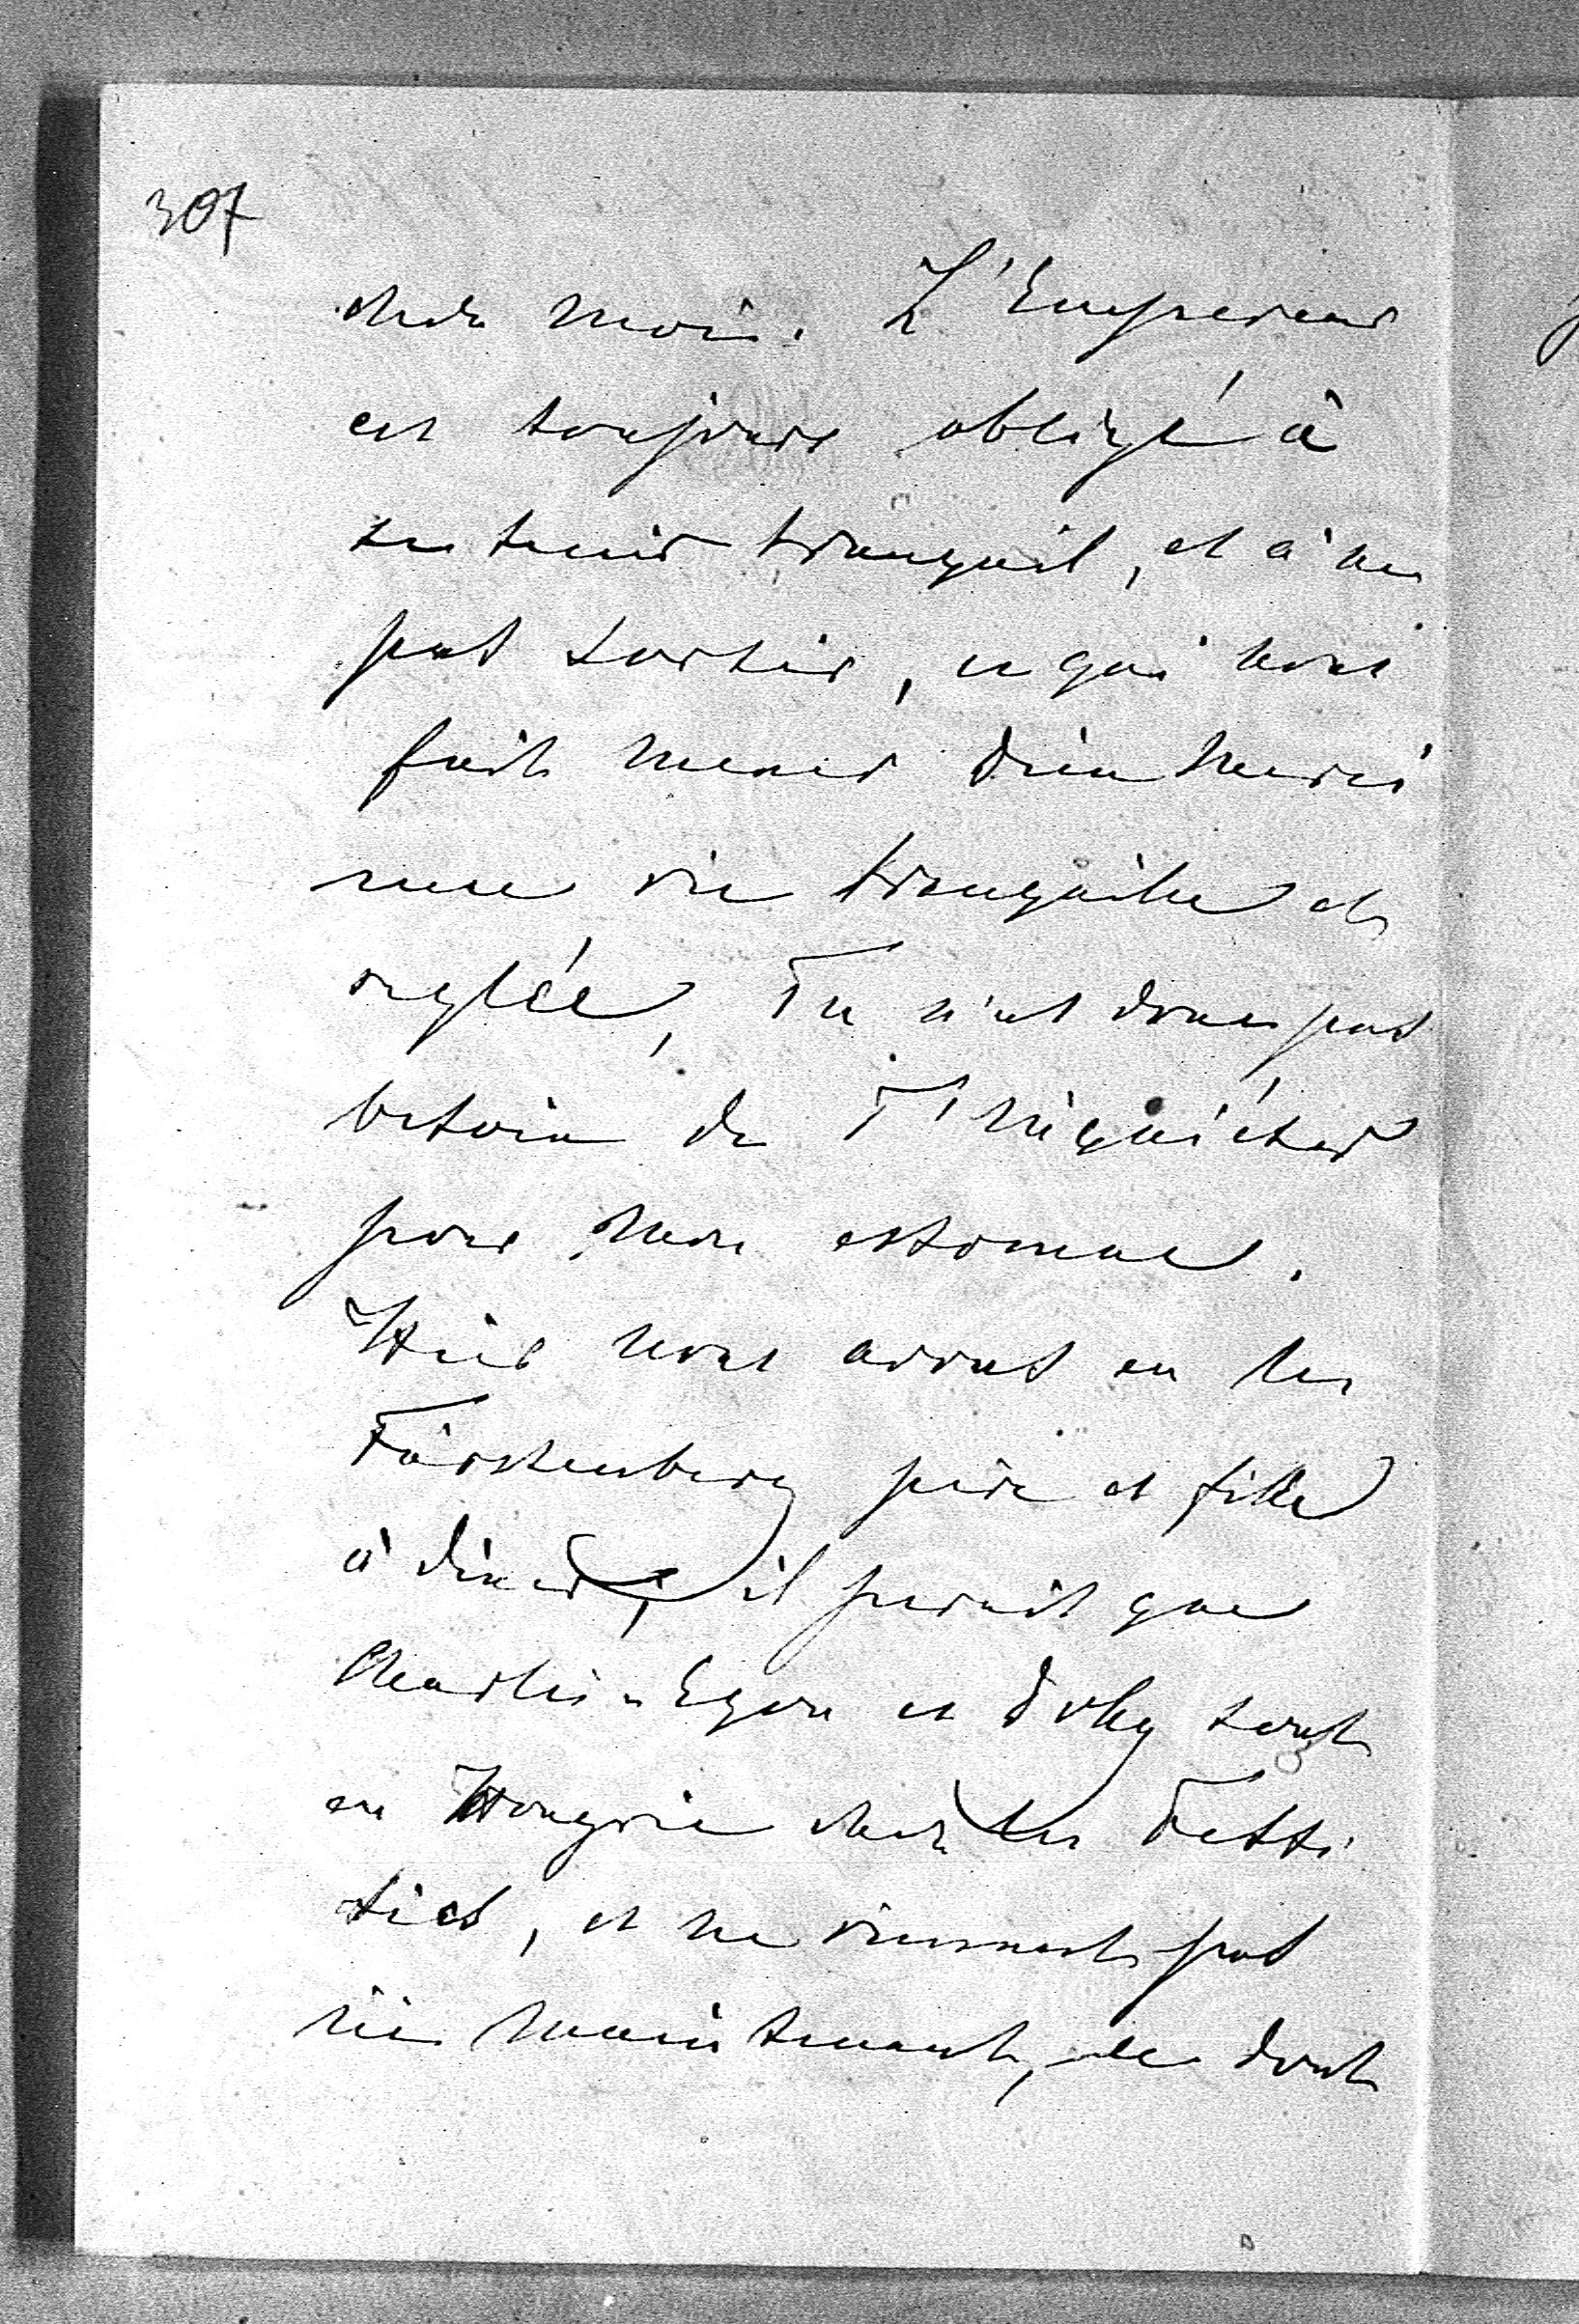 307
chez moi. L'Empereur
est toujours obligé à
se tenir tranquil, et à ne
pas sortir, ce qui nous
fait mener Dieu merci
une vie tranquille et
reglée, Tu n'as donc pas
besoin de T'inquiéter
pour mon estomac.
Hier nous avons eu les
Fürstenberg père et fille
à diner, il parait que
Charles-Egon et Dolly sont
en Hongrie chez les Festi
tics, et ne viennent pas
ici maintenant, ce dont